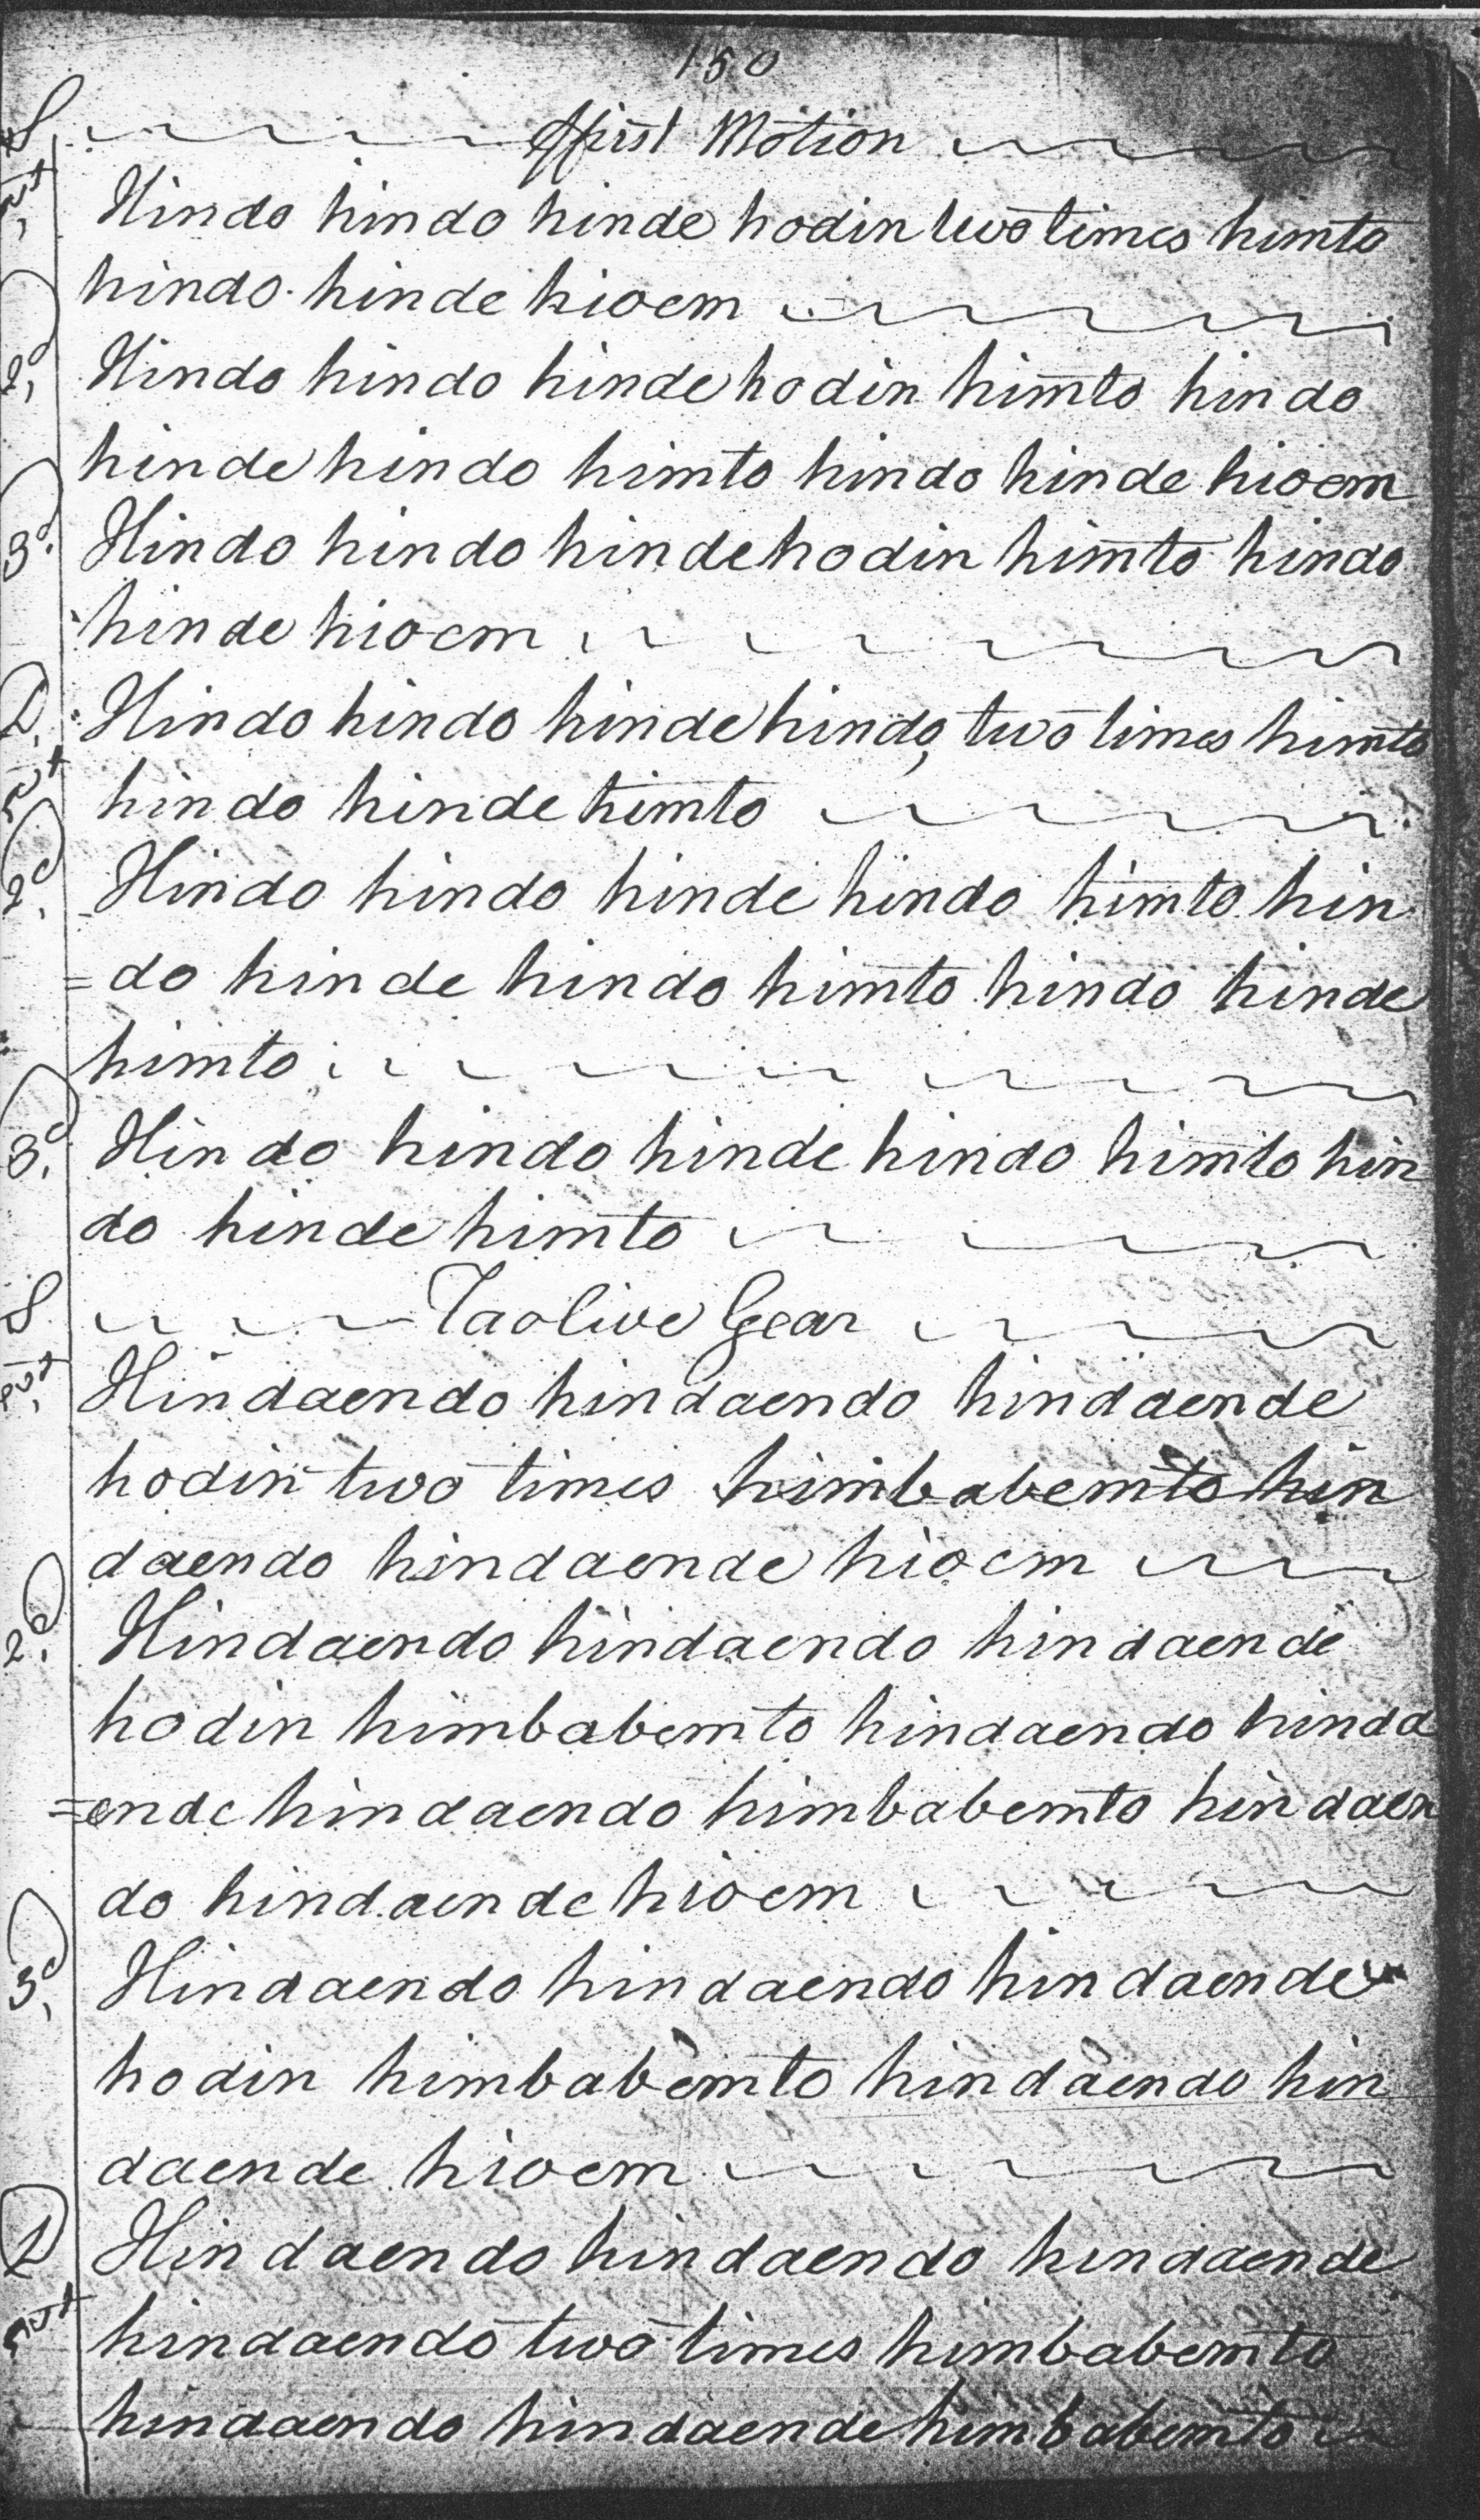 150
S, ffirst Motion
1st Hindo hindo hinde hodin two times himto
hindo hinde hioem
2d, Hindo hindo hinde hodin himto hindo
hinde hindo himto hindo hinde hioem
3d. Hindo hindo hinde hodin himto hindo
hinde hioem
D, Hindo hindo hinde hindo, two times himto
1st hindo hinde himto
2d, Hindo hindo hinde hindo himto hin
=do hinde hindo himto hindo hinde
himto
3d. Hindo hindo hinde hindo himto hin
do hinde himto
S Taolive Gear
1st, Hindaendo hindaendo hindaende
hodin two times himbabemto hin
daendo hindaende hioem
2d. Hindaendo hindaendo hindaende
hodin himbabemto hindaendo hinda
=ende hindaendo himbabemto hindaen
do hindaende hioem
3d, Hindaendo hindaendo hindaende
hodin himbabemto hindaendo hin
daende hioem
D Hindaendo hindaendo hindaende
1st hindaendo two times himbabemto
hindaendo hindaende himbabemto